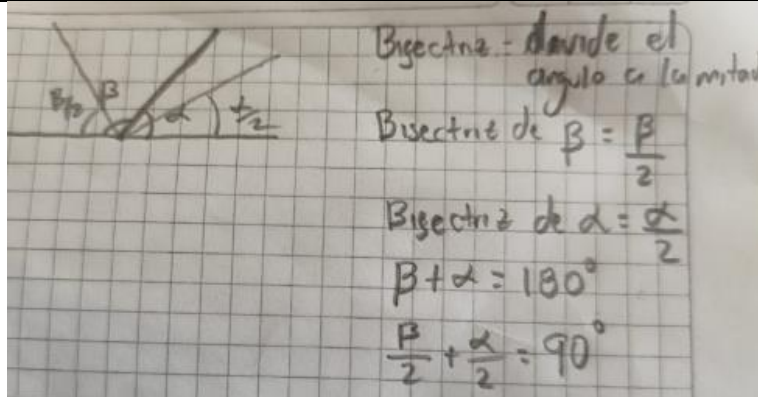 β/2 β α α/2
Bisectriz = divide el
angulo a la mitad
Bisectriz de β = β/2
Bisectriz de α = α/2
β + α = 180°
β/2 + α/2 = 90°